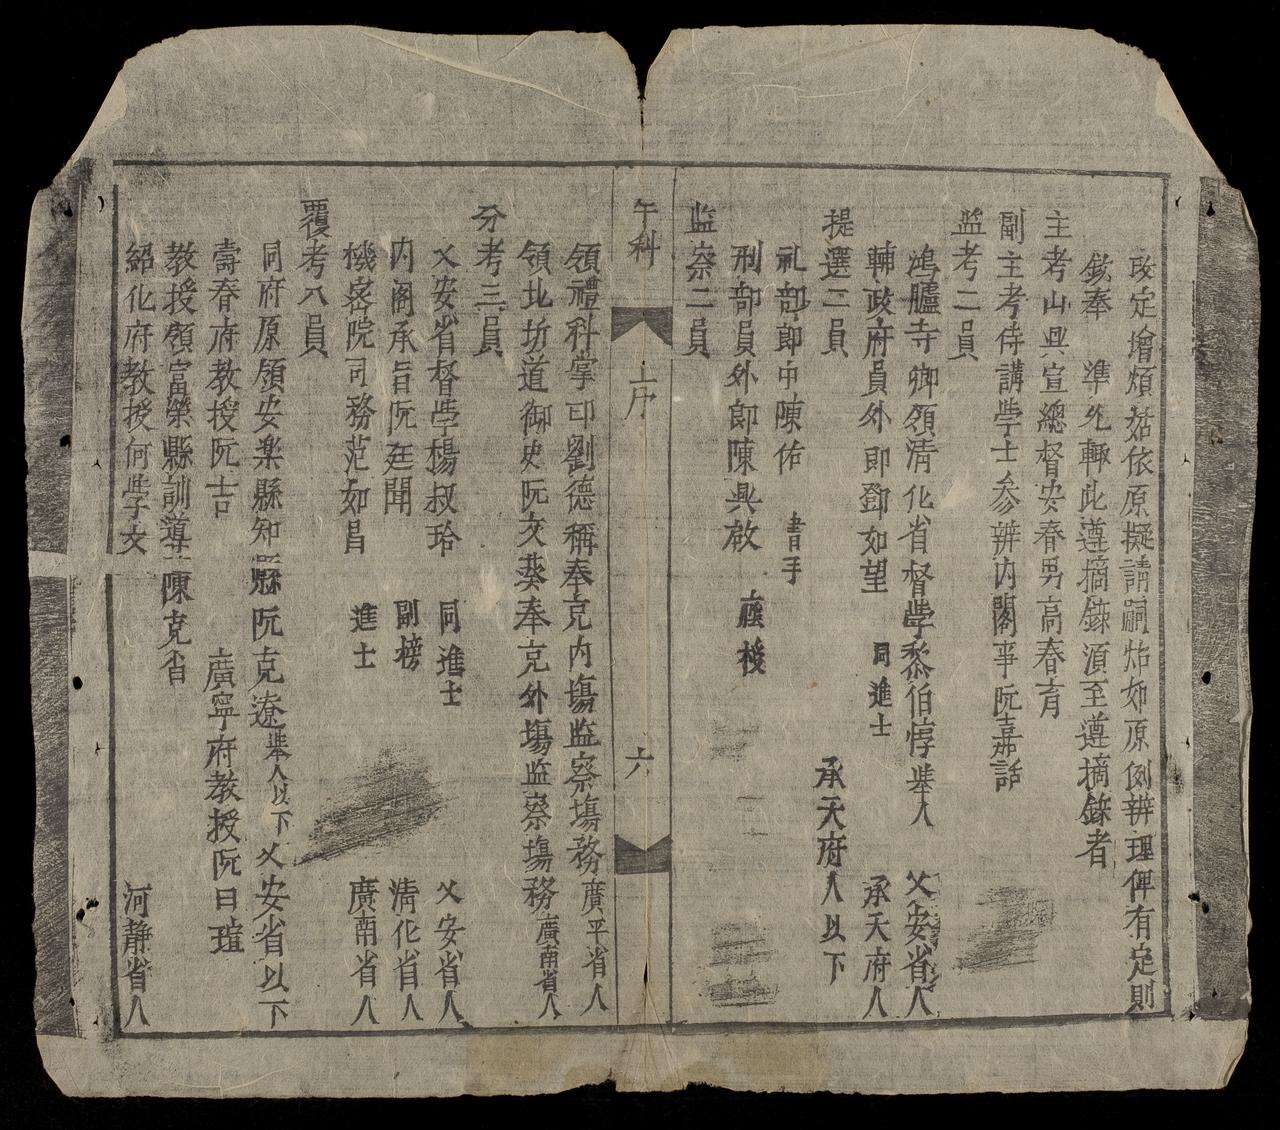 改定增煩姑依原擬請嗣炤如原例辨理俾有定則
欽奉　準允輙此遵摘錄湏至遵摘錄者
主考山興宣總督安春男高春育
副主考侍講學士參辨內閣事阮嘉話
監考二員
鴻臚寺卿領清化省督學黎伯惇 舉人 乂安省人
輔政府員外郎鄧如望 同進士 承天府人
提選二員 承天府人以下
礼部郎中陳佑 書手
刑部員外郎陳興啟 癊授
監察二員
午科 上序 六
領禮科掌印劉德稱奉充內場監察塲務 廣平省人
領北圻道御史阮文葵奉充外塲監察塲務 廣南省人
分考三員
乂安省督學楊叔玲 同進士 乂安省人
內閣承旨阮廷聞 副榜 清化省人
機密院司務范如昌 進士 廣南省人
覆考八員
同府原領安楽縣知縣阮克遼 舉人以下 乂安省以下
壽春府教授阮士吉 廣寧府教授阮曰瑄
教授領富榮縣訓導陳克省
紹化府教授何學文 河靜省人